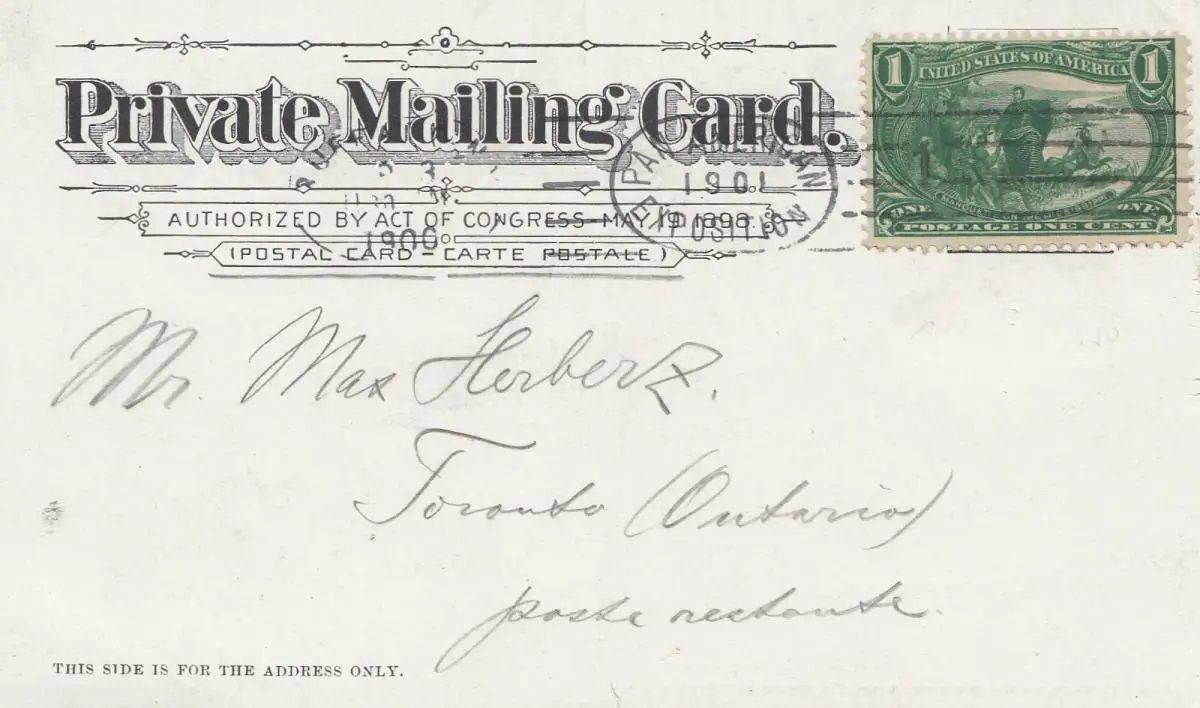 Private Mailing Card.
1 UNITED STATES OF AMERICA 1
PAN AMERICAN
1901
EXPOSITION
AUTHORIZED BY ACT OF CONGRESS MAY 19 1898.
1900
ONE ONE
POSTAGE ONE CENT
(POSTAL CARD – CARTE POSTALE)
Mr. Max Herberz.
Toronto (Ontario)
poste restante.
THIS SIDE IS FOR THE ADDRESS ONLY.